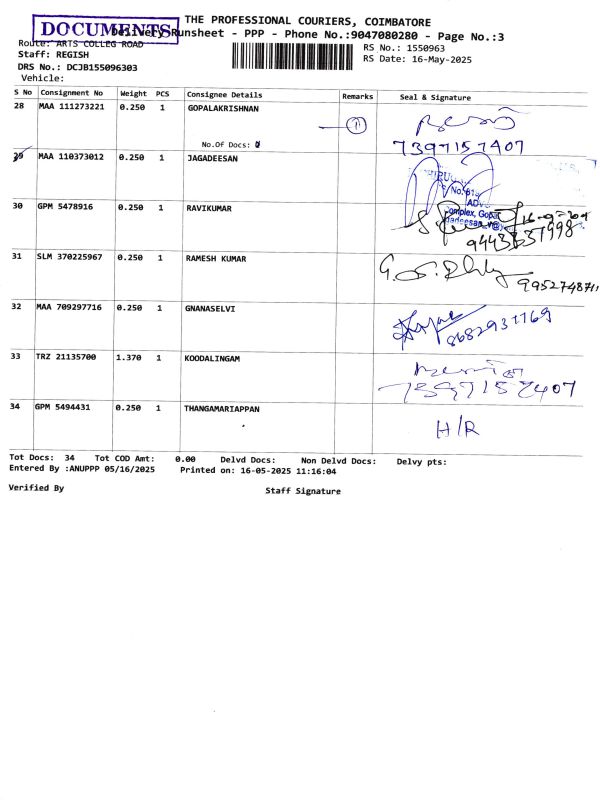 THE PROFESSIONAL COURIERS, COIMBATORE
DOCUMENTS
Delivery Runsheet - PPP - Phone No.:9047080280 - Page No.:3
Route: ARTS COLLEG ROAD
RS No.: 1550963
Staff: REGISH
RS Date: 16-May-2025
DRS No.: DCJB155096303
Vehicle:
S No Consignment No Weight PCS Consignee Details Remarks Seal & Signature
28 MAA 111273221 0.250 1 GOPALAKRISHNAN
No.Of Docs:
7397157407
29 MAA 110373012 0.250 1 JAGADEESAN
30 GPM 5478916 0.250 1 RAVIKUMAR
31 SLM 370225967 0.250 1 RAMESH KUMAR
32 MAA 709297716 0.250 1 GNANASELVI
8682931769
33 TRZ 21135700 1.370 1 KOODALINGAM
7397157407
34 GPM 5494431 0.250 1 THANGAMARIAPPAN
H/R
Tot Docs: 34 Tot COD Amt: 0.00 Delvd Docs: Non Delvd Docs: Delvy pts:
Entered By :ANUPPP 05/16/2025 Printed on: 16-05-2025 11:16:04
Verified By Staff Signature